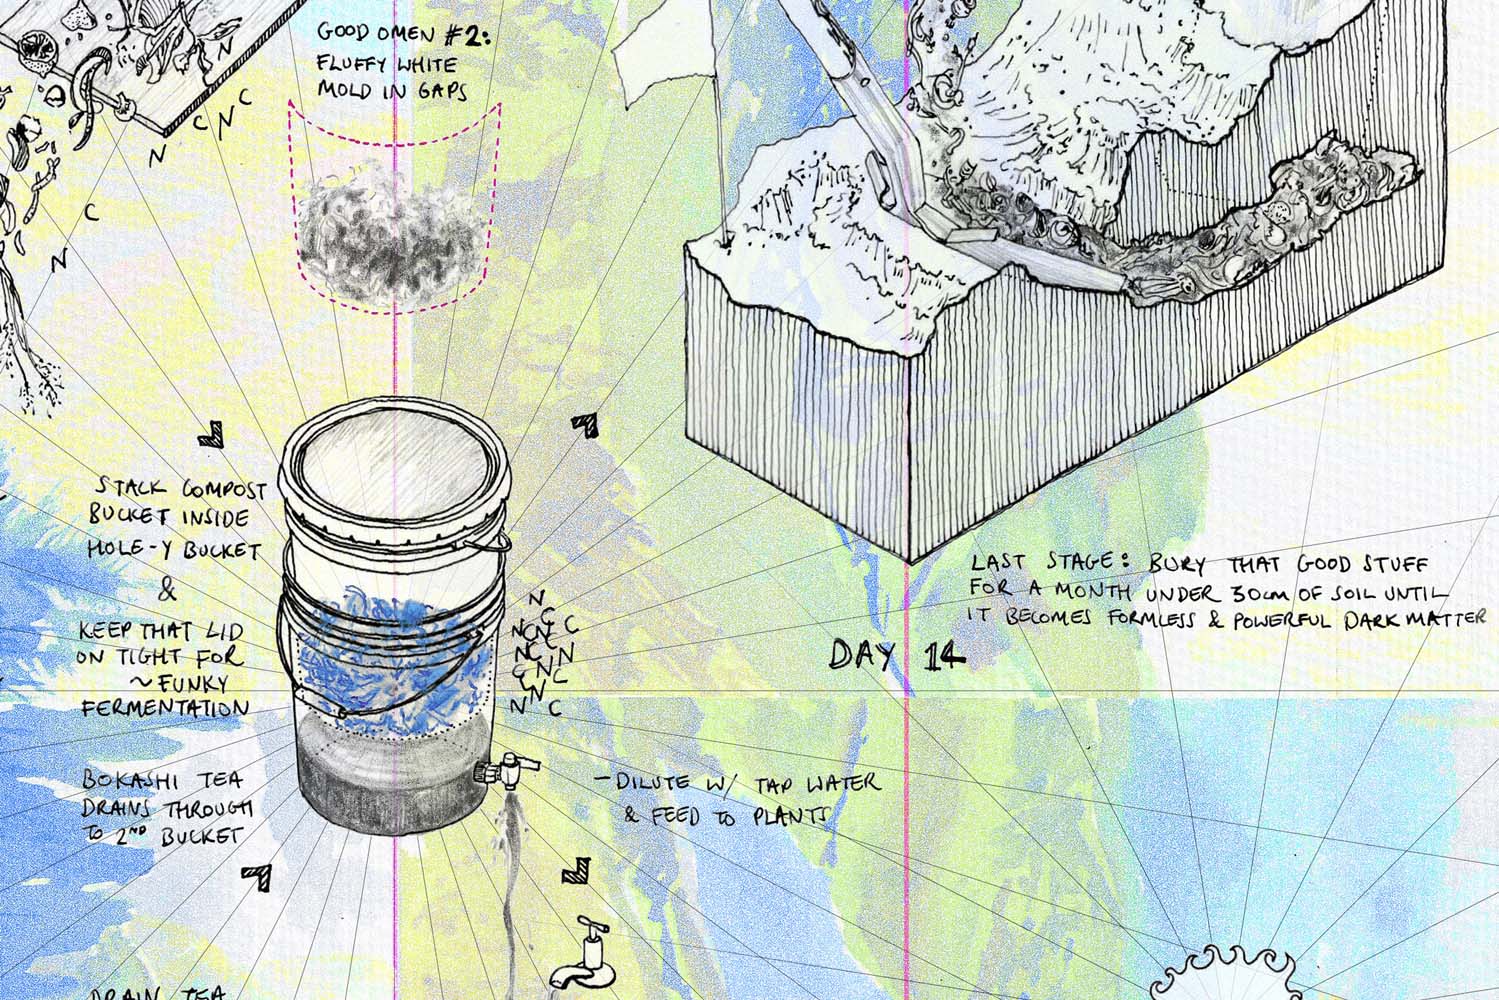 GOOD OMEN #2:
FLUFFY WHITE
MOLD IN GAPS
N
C
N
C
N
C
N
STACK COMPOST
BUCKET INSIDE
HOLE-Y BUCKET
&
KEEP THAT LID
ON TIGHT FOR
~FUNKY
FERMENTATION
N
C
NCNC
C
NC N
C N C
C N
N C
BOKASHI TEA
DRAINS THROUGH
TO 2ND BUCKET
—DILUTE W/ TAP WATER
& FEED TO PLANTS
LAST STAGE: BURY THAT GOOD STUFF
FOR A MONTH UNDER 30cm OF SOIL UNTIL
IT BECOMES FORMLESS & POWERFUL DARK MATTER
DAY 14
DRAIN TEA